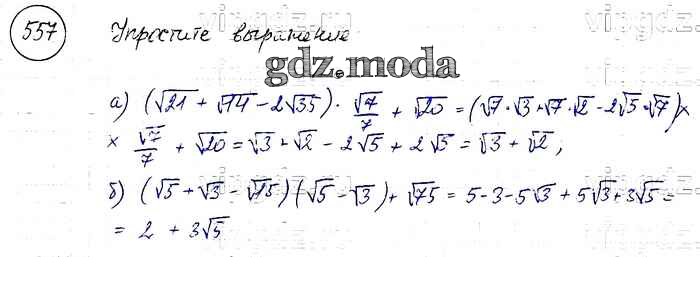 557 Упростите выражение
gdz.moda
а) (√21 + √14 - 2√35) · √7/7 + √20 = (√7·√3 + √7·√2 - 2√5·√7) ×
× √7/7 + √20 = √3 + √2 - 2√5 + 2√5 = √3 + √2;
б) (√5 + √3 - √15)(√5 - √3) + √75 = 5 - 3 - 5√3 + 5√3 + 3√5 =
= 2 + 3√5